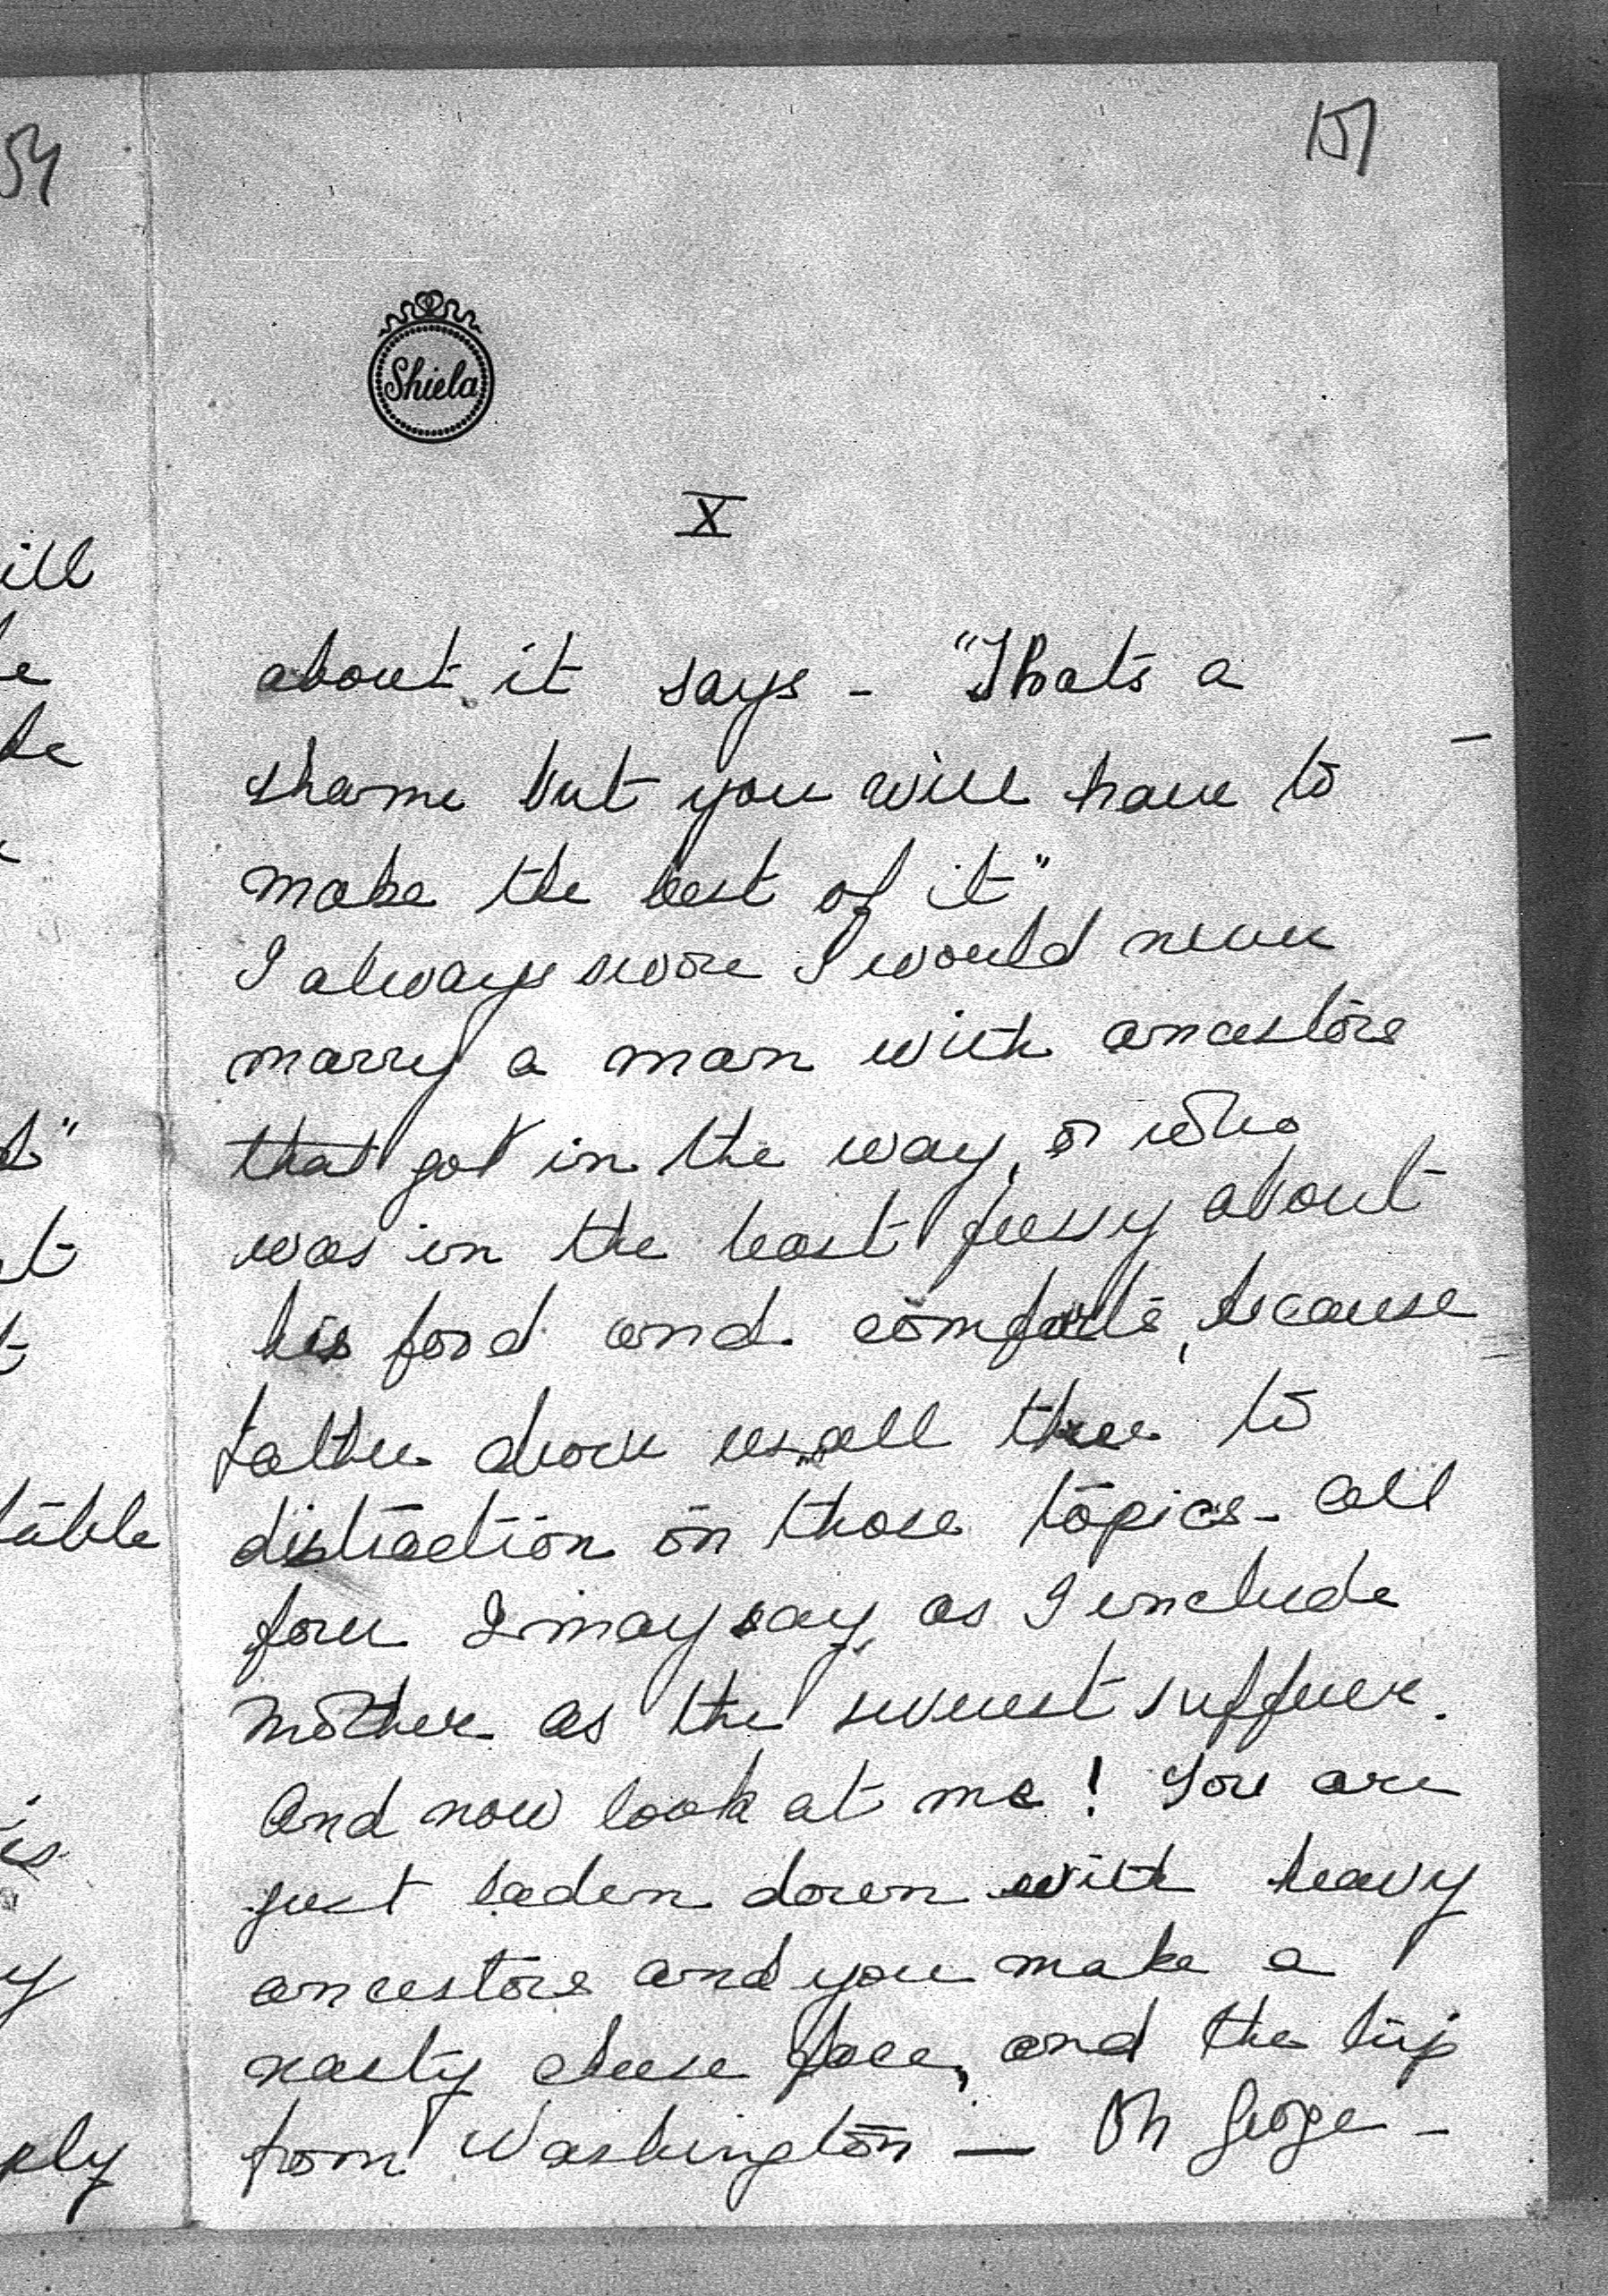 54
157
Shiela
X
ill
about it says - "Thats a
shame but you will have to
make the best of it"
I always swore I would never
marry a man with ancestors
that got in the way, or who
was in the least fussy about
his food and comforts, because
Father drove us all three to
distraction on those topics - all
four I may say, as I include
Mother as the severest sufferer.
And now look at me! You are
just laden down with heavy
ancestors and you make a
nasty cheese face, and the trip
from Washington — Oh George -
table
ply